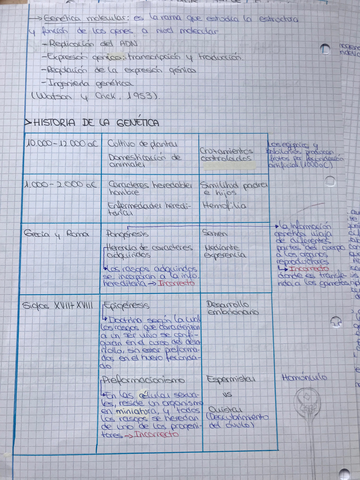 →Genética molecular: es la rama que estudia la estructura
y función de los genes a nivel molecular
-Replicación del ADN
-Expresión génica: transcripción y traducción
-Regulación de la expresión génica
-Ingeniería genética
(Watson y Crick, 1953)
>HISTORIA DE LA GENÉTICA
10.000-12.000 aC
Cultivo de plantas
Domesticación de
animales
Cruzamientos
controlados
1.000-2.000 aC
Caracteres heredables
hombre
Enfermedades heredi-
tarias
Similitud padres
e hijos
Hemofilia
Grecia y Roma
Pangénesis
Herencia de caracteres
adquiridos
↳Los rasgos adquiridos
se incorporan a la info.
hereditaria → Incorrecto
Semen
Mediante
experiencia
↳La información
genética viajaba
de diferentes
partes del cuerpo
a los órganos
reproductores
↳ Incorrecto
Siglos XVII y XVIII
Epigénesis
↳Doctrina según la cual
los rasgos que caracterizan
a un ser vivo se confi-
guran en el curso del desa-
rrollo, sin estar preforma-
dos en el huevo fecunda-
do
Desarrollo
embrionario
Preformacionismo
↳En las células sexua-
les, reside un organismo
en miniatura, y todos
los rasgos se heredan
de uno de los progeni-
tores → Incorrecto
Espermistas
vs
Ovistas
(Descubrimiento
del óvulo)
Homúnculo